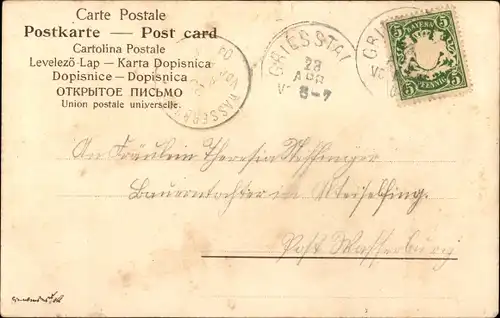 Carte Postale
Postkarte — Post card
Cartolina Postale
Levelező-Lap — Karta Dopisnica
Dopisnice — Dopisnica
ОТКРЫТОЕ ПИСЬМО
Union postale universelle.
GRIESSTÄT
28
APR
6-7
GRI
WASSERB
BAYERN
5 5
5 5
PFENNIG
An Fräulein Theresia
Bauerntochter in
Post Wasserburg